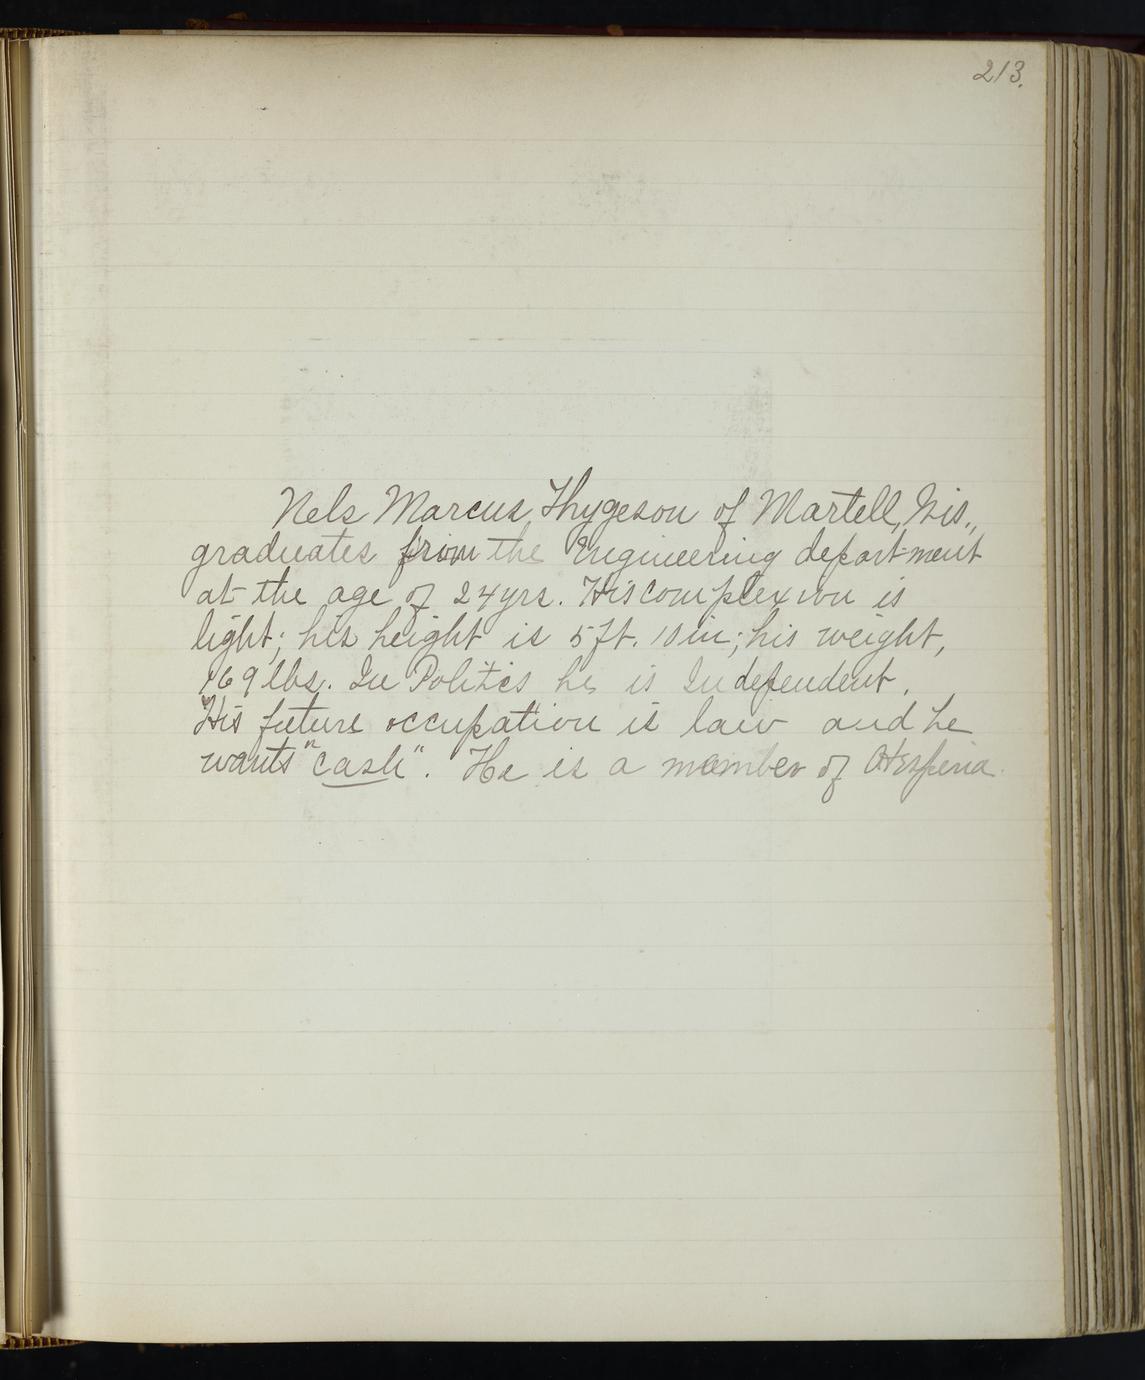 213.
Nels Marcus Thygeson of Martell, Wis.,
graduates from the Engineering department
at the age of 24 yrs. His complexion is
light; his height is 5 ft. 10 in; his weight,
169 lbs. In Politics he is Independent.
His future occupation is law and he
wants "cash". He is a member of Hesperia.